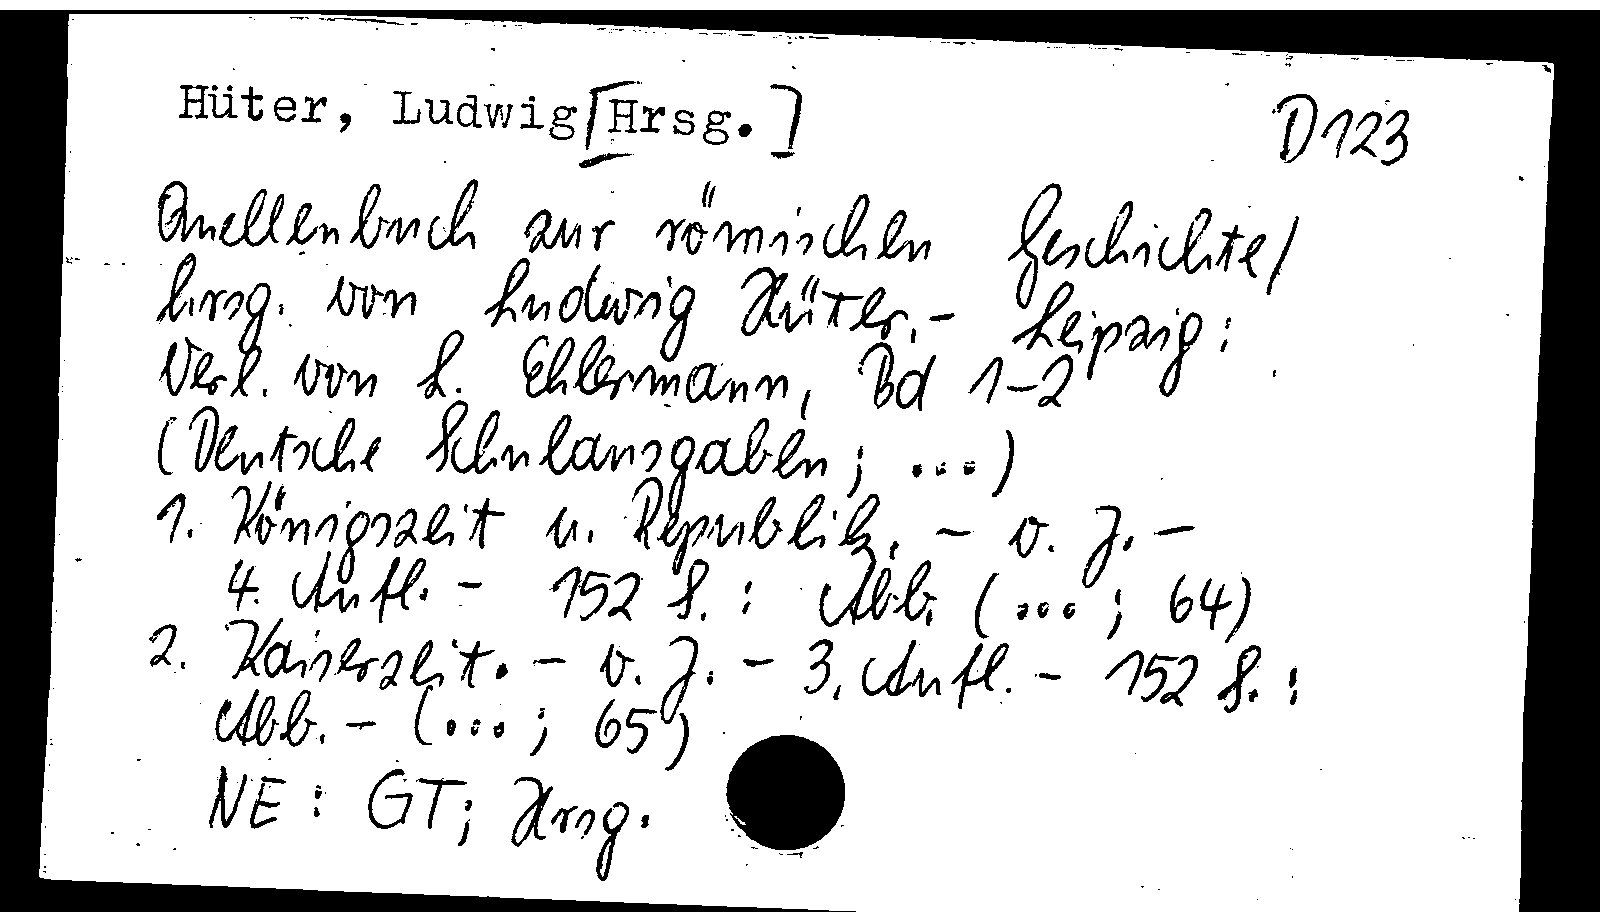 Hüter, Ludwig [Hrsg.]
D 123
Quellenbuch zur römischen Geschichte/
hrsg. von Ludwig Hüter.- Leipzig:
Verl. von L. Ehlermann, Bd 1-2
(Deutsche Schulausgaben; ...)
1. Königszeit u. Republik. - o. J. -
4. Aufl. - 152 S. : Abb. (...; 64)
2. Kaiserzeit. - o. J. - 3. Aufl. - 152 S. :
Abb. - (...; 65)
NE: GT; Hrsg.